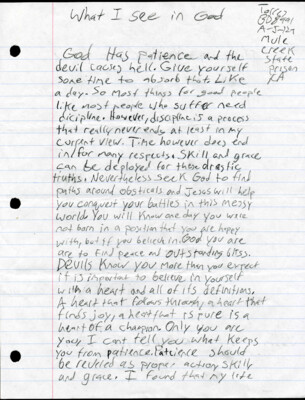 What I see in God
Torres
A-5-127
Mule
Creek
State
Prison
God Has patience and the
devil causes hell. Give yourself
some time to absorb that. Like
a day. So most things for good people
like most people who suffer need
dicipline. However, discipline is a process
that really never ends at least in my
current view. Time however does end
in/for many respects. Skill and grace
can be deployed for these drastic
truths. Nevertheless seek God to find
paths around obsticals and Jesus will help
you conquest your battles in this messy
world. You will know one day you were
not born in a position that you are happy
with, but if you believe in God you are
are to find peace and outstanding bliss.
Devils know you more than you expect
it is important to believe in yourself
with a heart and all of its definitions.
A heart that follows through, a heart that
finds joy, a heart that is pure is a
heart of a champion. Only you are
you, I cant tell you what keeps
you from patience. Patience should
be reveled as proper action, skill
and grace. I found that my life